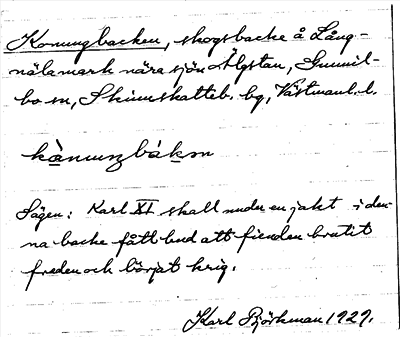 Konungbacken, skogsbacke å Lång-
nälamark nära sjön Älgstan, Gunnil-
bo sn, Skinnskatteb. bg, Västmanl. l.
kànuŋbákən
Sägen: Karl XI skall under en jakt i den-
na backe fått bud att fienden brutit
freden och börjat krig.
Karl Björkman 1929.